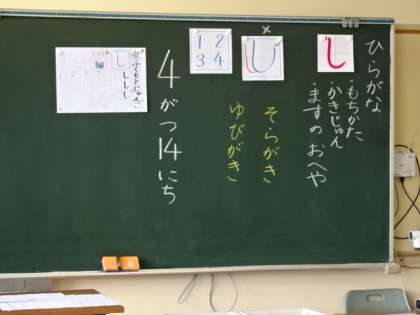 ひらがな
し
・もちかた
・かきじゅん
・ますのおへや
×
し
そらがき
ゆびがき
1 2
3 4
4がつ14にち
し
ししし